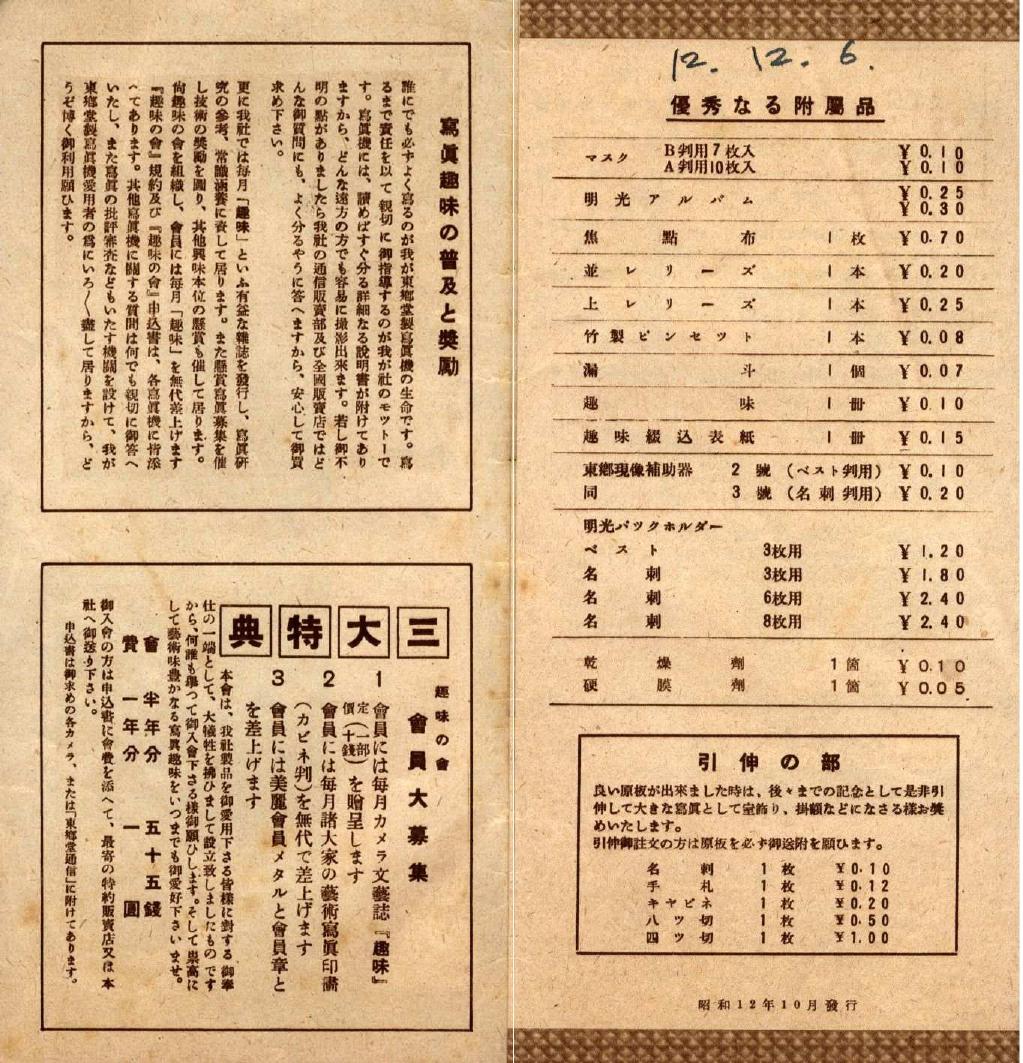 寫眞趣味の普及と奬勵
誰にでも必ずよく寫るのが我が東郷堂製寫眞機の生命です。寫
るまで責任を以て親切に御指導するのが我が社のモツトーで
す。寫眞機には、讀めばすぐ分る詳細なる說明書が附けてあり
ますから、どんな遠方の方でも容易に撮影出來ます。若し御不
明の點がありましたら我社の通信販賣部及び全國販賣店ではど
んな御質問にも、よく分るやうに答へますから、安心して御買
求め下さい。
更に我社では每月「趣味」といふ有益な雜誌を發行し、寫眞硏
究の參考、常識涵養に資して居ります。また懸賞寫眞募集を催
し技術の奬勵を圖り、其他興味本位の懸賞も催して居ります。
尙趣味の會を組織し、會員には每月「趣味」を無代差上げます
『趣味の會』規約及び『趣味の會』申込書は、各寫眞機に皆添
へてあります。其他寫眞機に關する質問は何でも親切に御答へ
いたし、また寫眞の批評審査などもいたす機關を設けて、我が
東郷堂製寫眞機愛用者の爲にいろ〱盡して居りますから、ど
うぞ博く御利用願ひます。
趣味の會
會員大募集
三大特典
1 會員には每月カメラ文藝誌『趣味』
定價(一部十錢)を贈呈します
2 會員には每月諸大家の藝術寫眞印畵
(カビネ判)を無代で差上げます
3 會員には美麗會員メタルと會員章と
を差上げます
本會は、我社製品を御愛用下さる皆樣に對する御奉
仕の一端として、大犧牲を拂ひまして設立致しましたものです
から、何誰も擧つて御入會下さる樣御願ひします。そして崇高に
して藝術味豊かなる寫眞趣味をいつまでも御愛好下さいませ。
會費 半年分 五十五錢
一年分 一圓
御入會の方は申込書に會費を添へて、最寄の特約販賣店又は本
社へ御送り下さい。
申込書は御求めの各カメラ、または「東郷堂通信」に附けてあります。
12. 12. 6.
優秀なる附屬品
マスク B判用7枚入 ¥0.10
A判用10枚入 ¥0.10
明光アルバム ¥0.25
¥0.30
焦點布 1枚 ¥0.70
並レリーズ 1本 ¥0.20
上レリーズ 1本 ¥0.25
竹製ピンセット 1本 ¥0.08
漏斗 1個 ¥0.07
趣味 1冊 ¥0.10
趣味綴込表紙 1冊 ¥0.15
東郷現像補助器 2號(ベスト判用) ¥0.10
同 3號(名刺判用) ¥0.20
明光パックホルダー
ベスト 3枚用 ¥1.20
名刺 3枚用 ¥1.80
名刺 6枚用 ¥2.40
名刺 8枚用 ¥2.40
乾燥劑 1箇 ¥0.10
硬膜劑 1箇 ¥0.05
引伸の部
良い原板が出來ました時は、後々までの記念として是非引
伸して大きな寫眞として室飾り、掛額などになさる樣お奬
めいたします。
引伸御註文の方は原板を必ず御送附を願ひます。
名刺 1枚 ¥0.10
手札 1枚 ¥0.12
キャビネ 1枚 ¥0.20
八ツ切 1枚 ¥0.50
四ツ切 1枚 ¥1.00
昭和12年10月發行